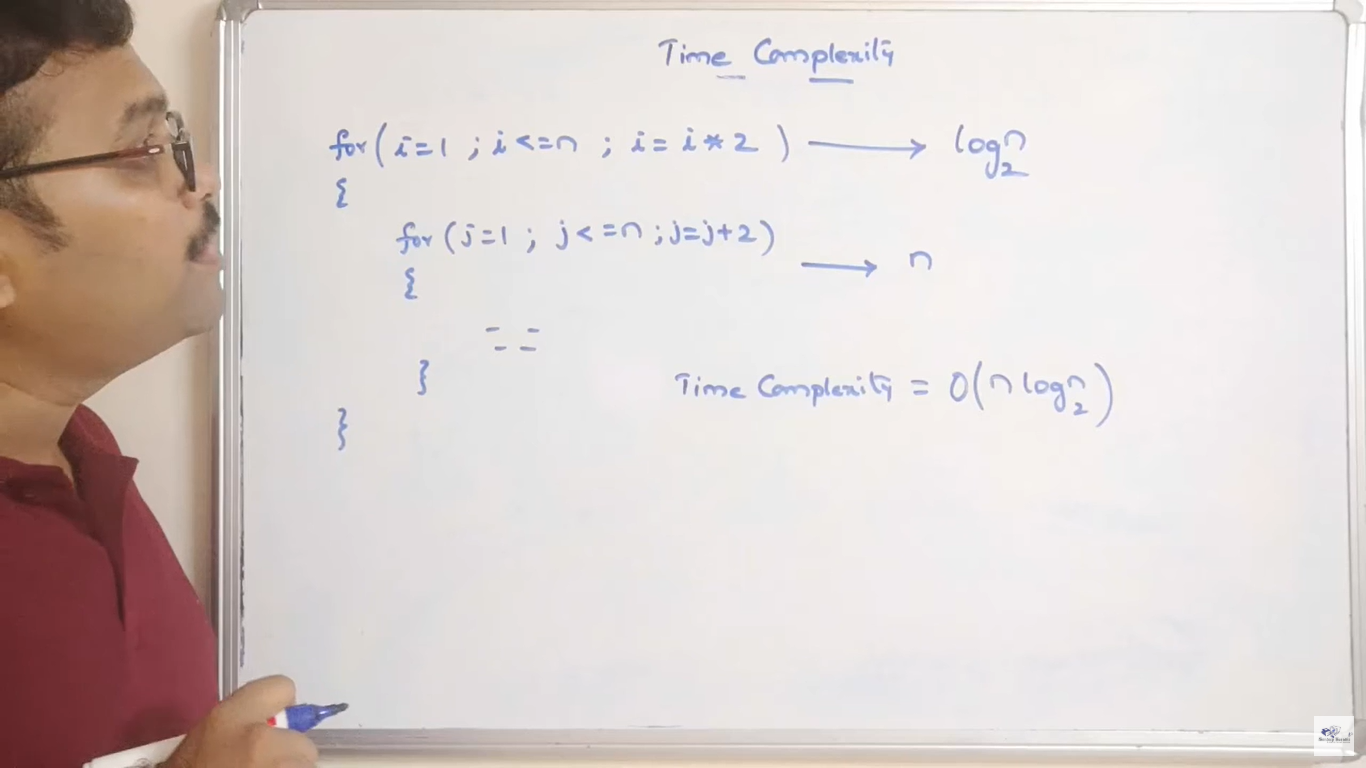 Time Complexity
for(i=1 ; i<=n ; i=i*2) ⟶ log₂n
{
for(j=1 ; j<=n ; j=j+2)
⟶ n
{
}
Time Complexity = O(n log₂n)
}